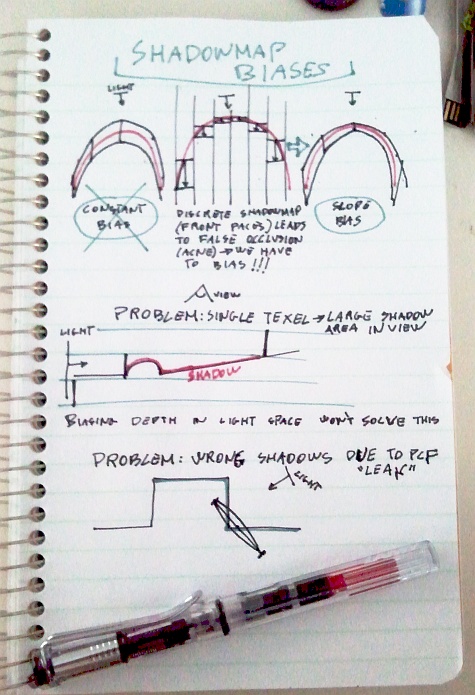 SHADOWMAP
BIASES
LIGHT
CONSTANT
BIAS
DISCRETE SHADOWMAP
(FRONT FACES) LEADS
TO FALSE OCCLUSION
(ACNE) → WE HAVE
TO BIAS!!!
SLOPE
BIAS
VIEW
PROBLEM: SINGLE TEXEL → LARGE SHADOW
AREA IN VIEW
LIGHT
SHADOW
BIASING DEPTH IN LIGHT SPACE WON'T SOLVE THIS
PROBLEM: WRONG SHADOWS DUE TO PCF
"LEAK"
LIGHT